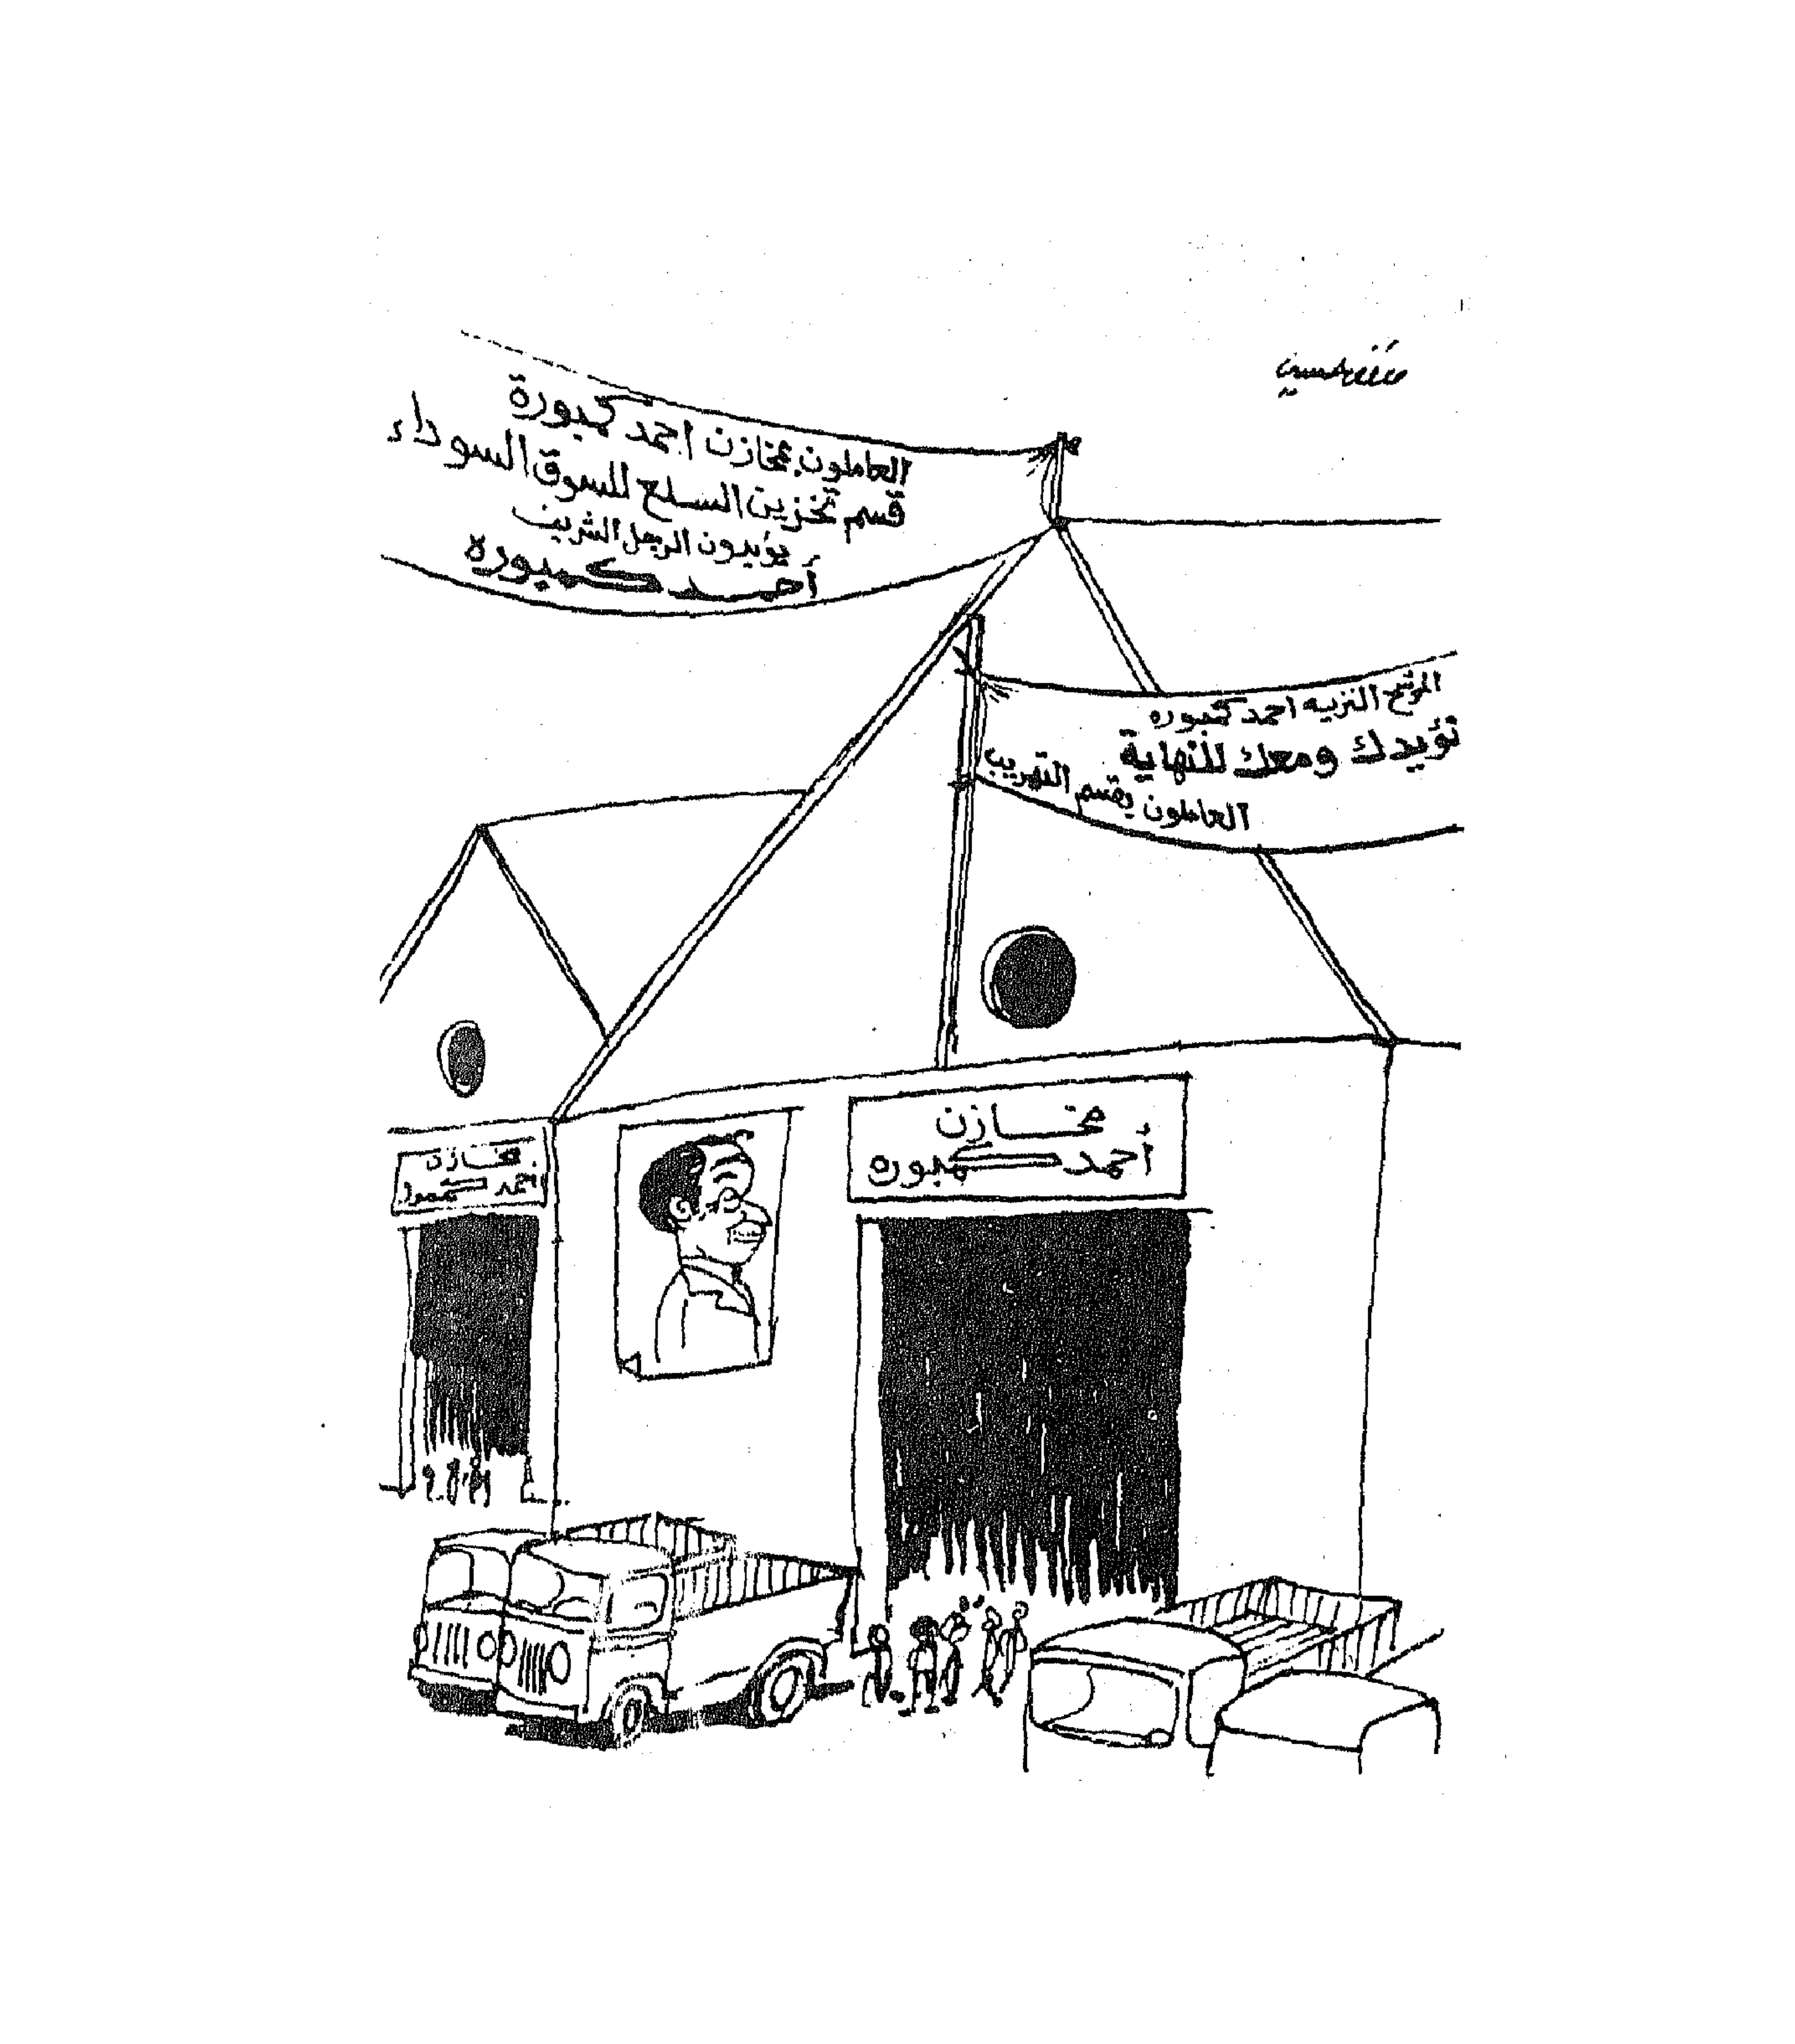 العاملون بمخازن احمد كمبورة
قسم تخزين السلع للسوق السوداء
يؤيدون الرجل الشريف
أحمد كمبوره
المرشح النزيه احمد كمبوره
نؤيدك ومعك للنهاية
العاملون بقسم التهريب
مخازن
أحمد كمبوره
مخازن
احمد